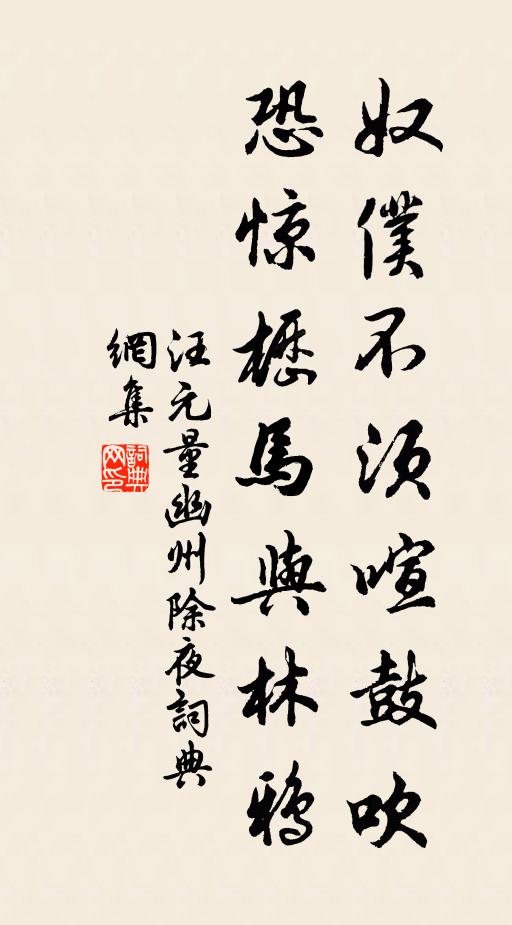 奴僕不須喧鼓吹
恐惊櫪馬與林鴉
汪元量幽州除夜詞典
網集
詞典
网印